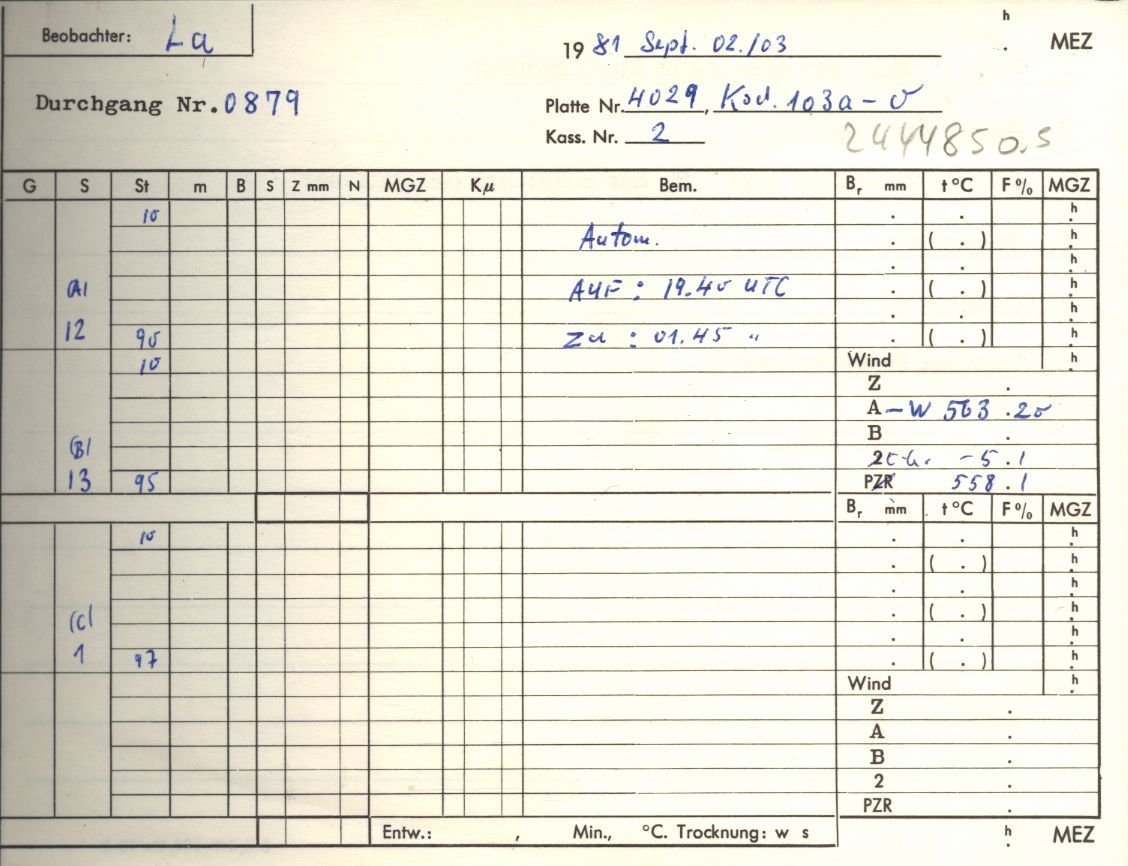 Beobachter: La
h
19 81 Sept. 02./03 . MEZ
Durchgang Nr. 0879
Platte Nr. 4029, Kod. 103a-O
Kass. Nr. 2
2444850.5
G S St m B S Z mm N MGZ Kμ Bem. Br mm t °C F % MGZ
10 . . h
Autom. . ( . ) h
. . h
(A) AUF : 19.40 UTC . ( . ) h
. . h
12 90 ZU : 01.45 " . ( . ) h
10 Wind h
Z .
A - W 563 .20
B .
(B) 2 -5.1
13 95 PZR 558.1
Br mm t °C F % MGZ
10 . . h
. ( . ) h
. . h
(C) . ( . ) h
. . h
1 97 . ( . ) h
Wind h
Z .
A .
B .
2 .
PZR .
Entw.: , Min., °C. Trocknung: w s h . MEZ